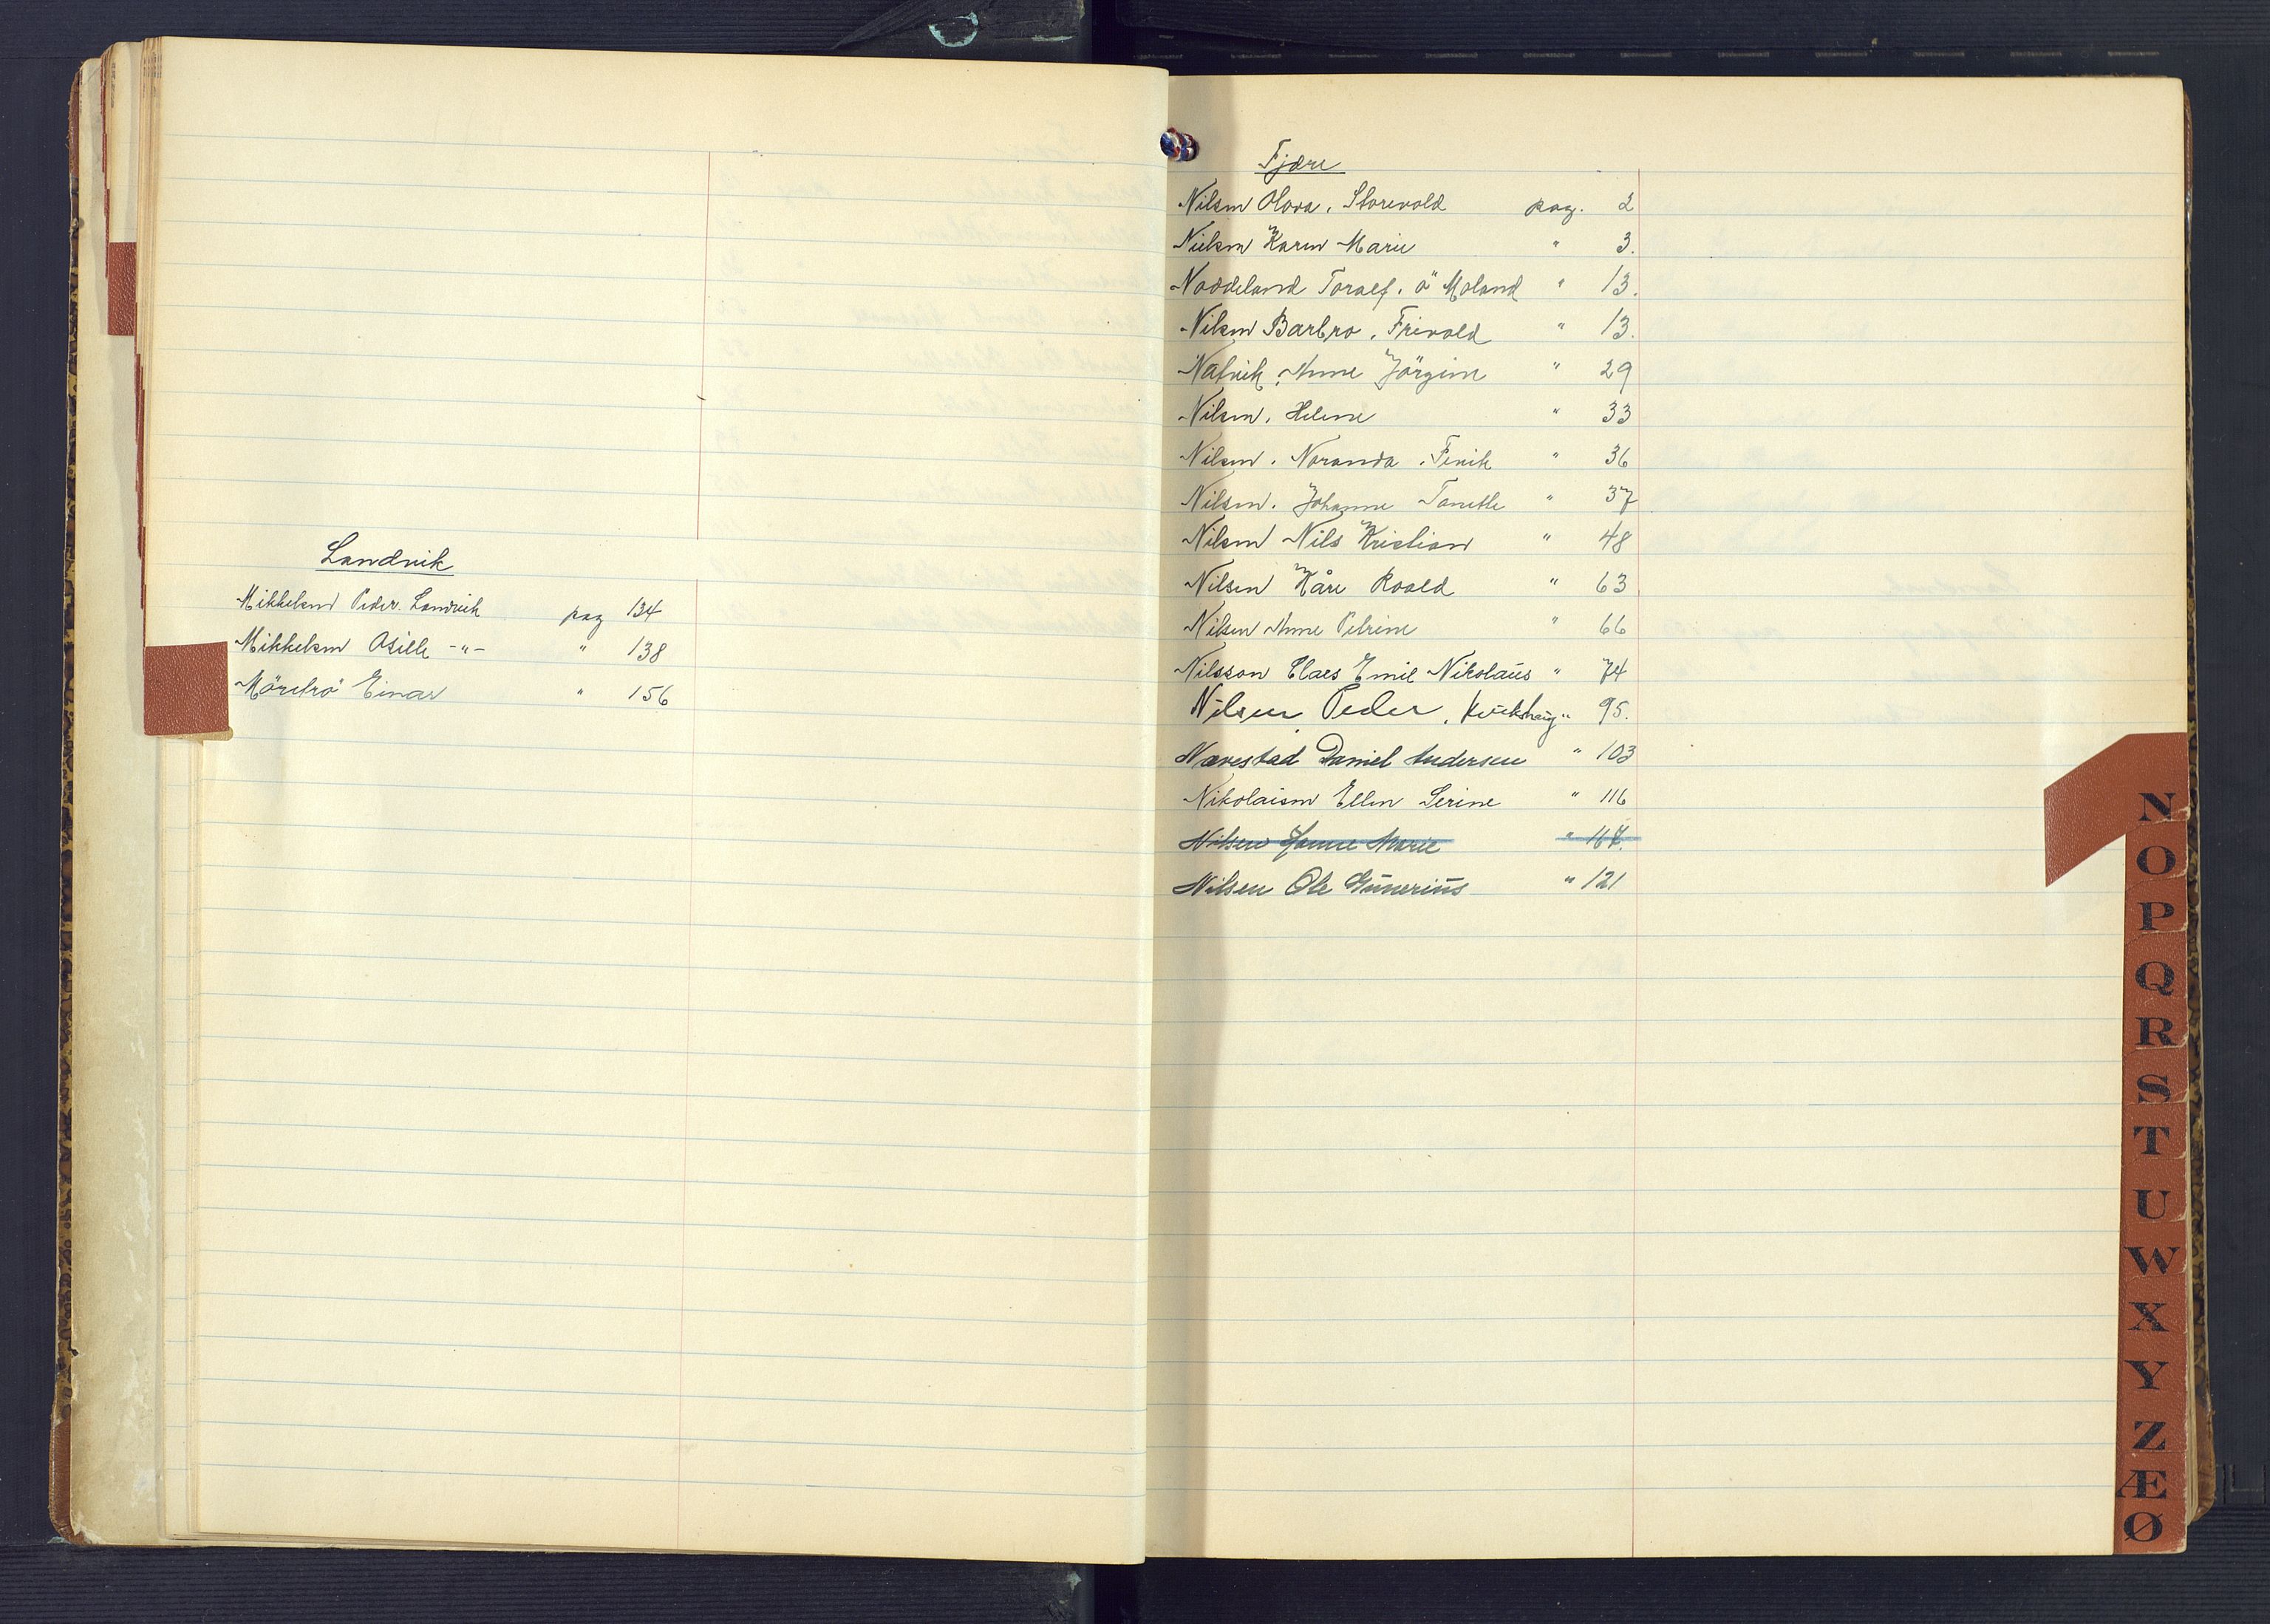 Landvik
Mikkelsen Peder. Landvik pag 134
Mikkelsen Asille -"- " 138
Mörelrö Einar " 156
Fjære
Nilsen Olava, Storevold pag. 2
Nielsen Karen Marie " 3.
Noddeland Toralf. ö Moland " 13.
Nilsen Barbro, Frivold " 13.
Natvik, Anne Jörgine " 29
Nilsen, Helene " 33
Nilsen, Naranda, Fevik " 36
Nilsen, Johanne Tanette " 37
Nilsen Nils Kristian " 48
Nilsen Kåre Roald " 63
Nilsen Anne Petrine " 66
Nilsson Claes Emil Nikolaus " 74
Nilsen Peder, " 95.
Nævestad Daniel Andersen " 103
Nikolaisen Ellen Serine " 116
Nilsen Hanne Marie "
Nilsen Ole Gunerius " 121
N
O
P
Q
R
S
T
U
W
X
Y
Z
Æ
Ø